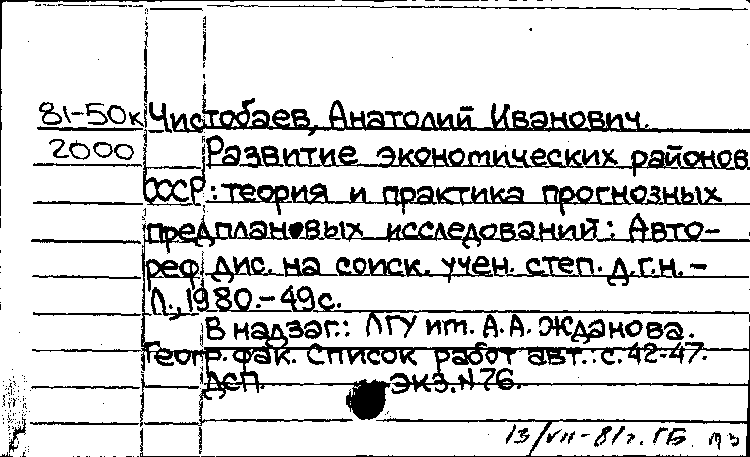 81-50к Чистобаев, Анатолий Иванович.
2000 Развитие экономических районов
СССР: теория и практика прогнозных
предплановых исследований: Авто-
реф. дис. на соиск. учен. степ. д.г.н. -
Л., 1980.-49с.
В надзаг.: ЛГУ им. А.А. Жданова.
Геогр. фак. Список работ авт.: с.42-47.
ДСП. Экз.N76.
13/VII-81г. ГБ